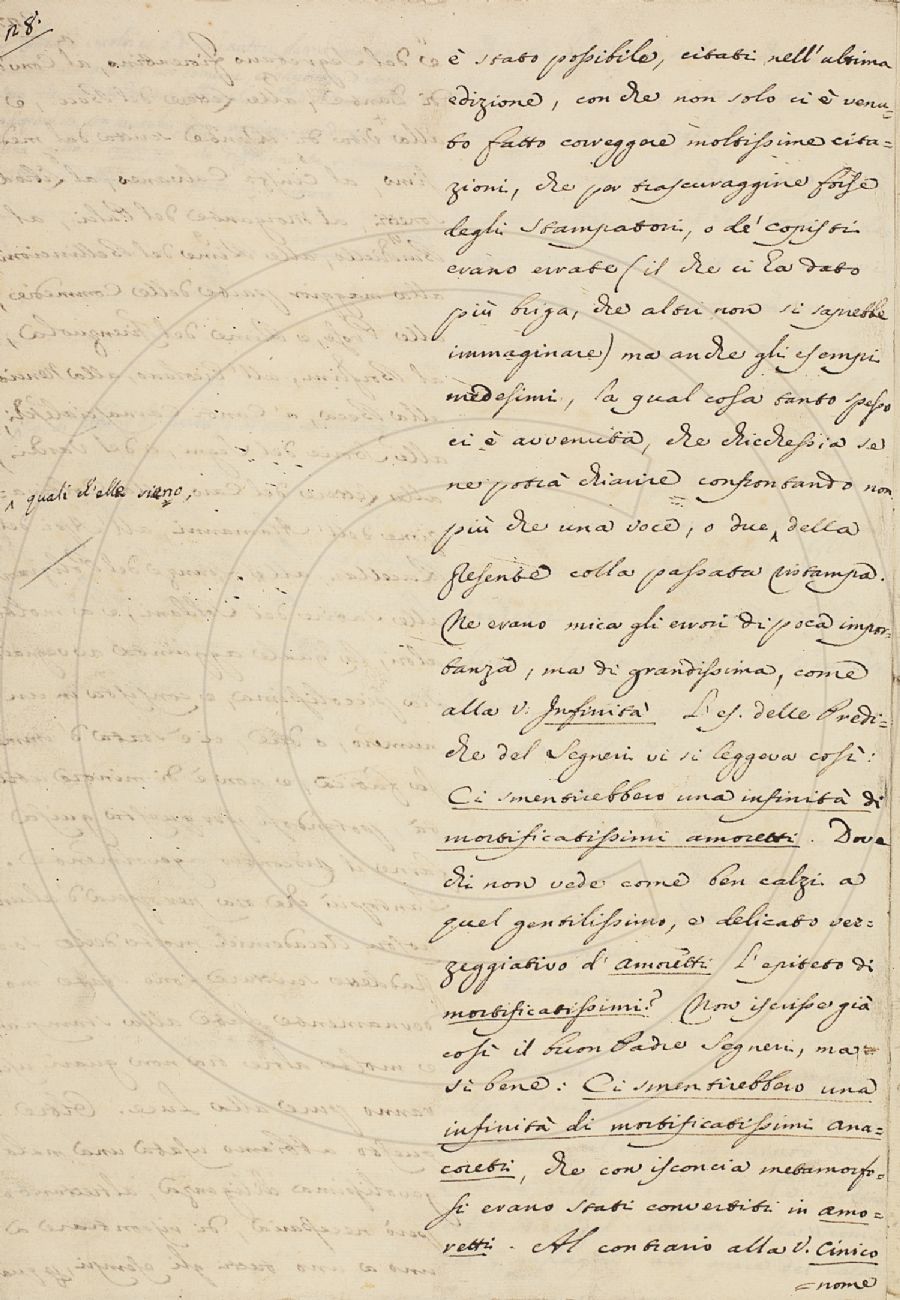 128.
è stato possibile, citati nell'ultima
edizione, con che non solo ci è venu=
to fatto correggere moltissime cita=
zioni, che per trascuraggine forse
degli Stampatori, o de' copisti
erano errate (il che ci ha dato
più briga, che altri non si saprebbe
immaginare) ma anche gli esempi
medesimi, la qual cosa tanto spesso
ci è avvenuta, che chicchessia se
ne potrà chiarire confrontando non
più che una voce, o due ^ della
^ quali ch'elle sieno,
presente colla passata ristampa.
Ne erano mica gli errori di poca impor=
tanza, ma di grandissima, come
alla V. Infinità L'es. delle Predi=
che del Segneri vi si leggeva così:
Ci smentirebbero una infinità di
mortificatissimi amoretti. Dove
chi non vede come ben calzi a
quel gentilissimo, e delicato vez=
zeggiativo d'amoretti L'epiteto di
mortificatissimi? Non iscrisse già
così il buon Padre Segneri, ma
si bene: Ci smentirebbero una
infinità di mortificatissimi ana=
coreti, che con isconcia metamorfo=
si erano stati convertiti in amo=
retti. Al contrario alla V. Cinico
=nome